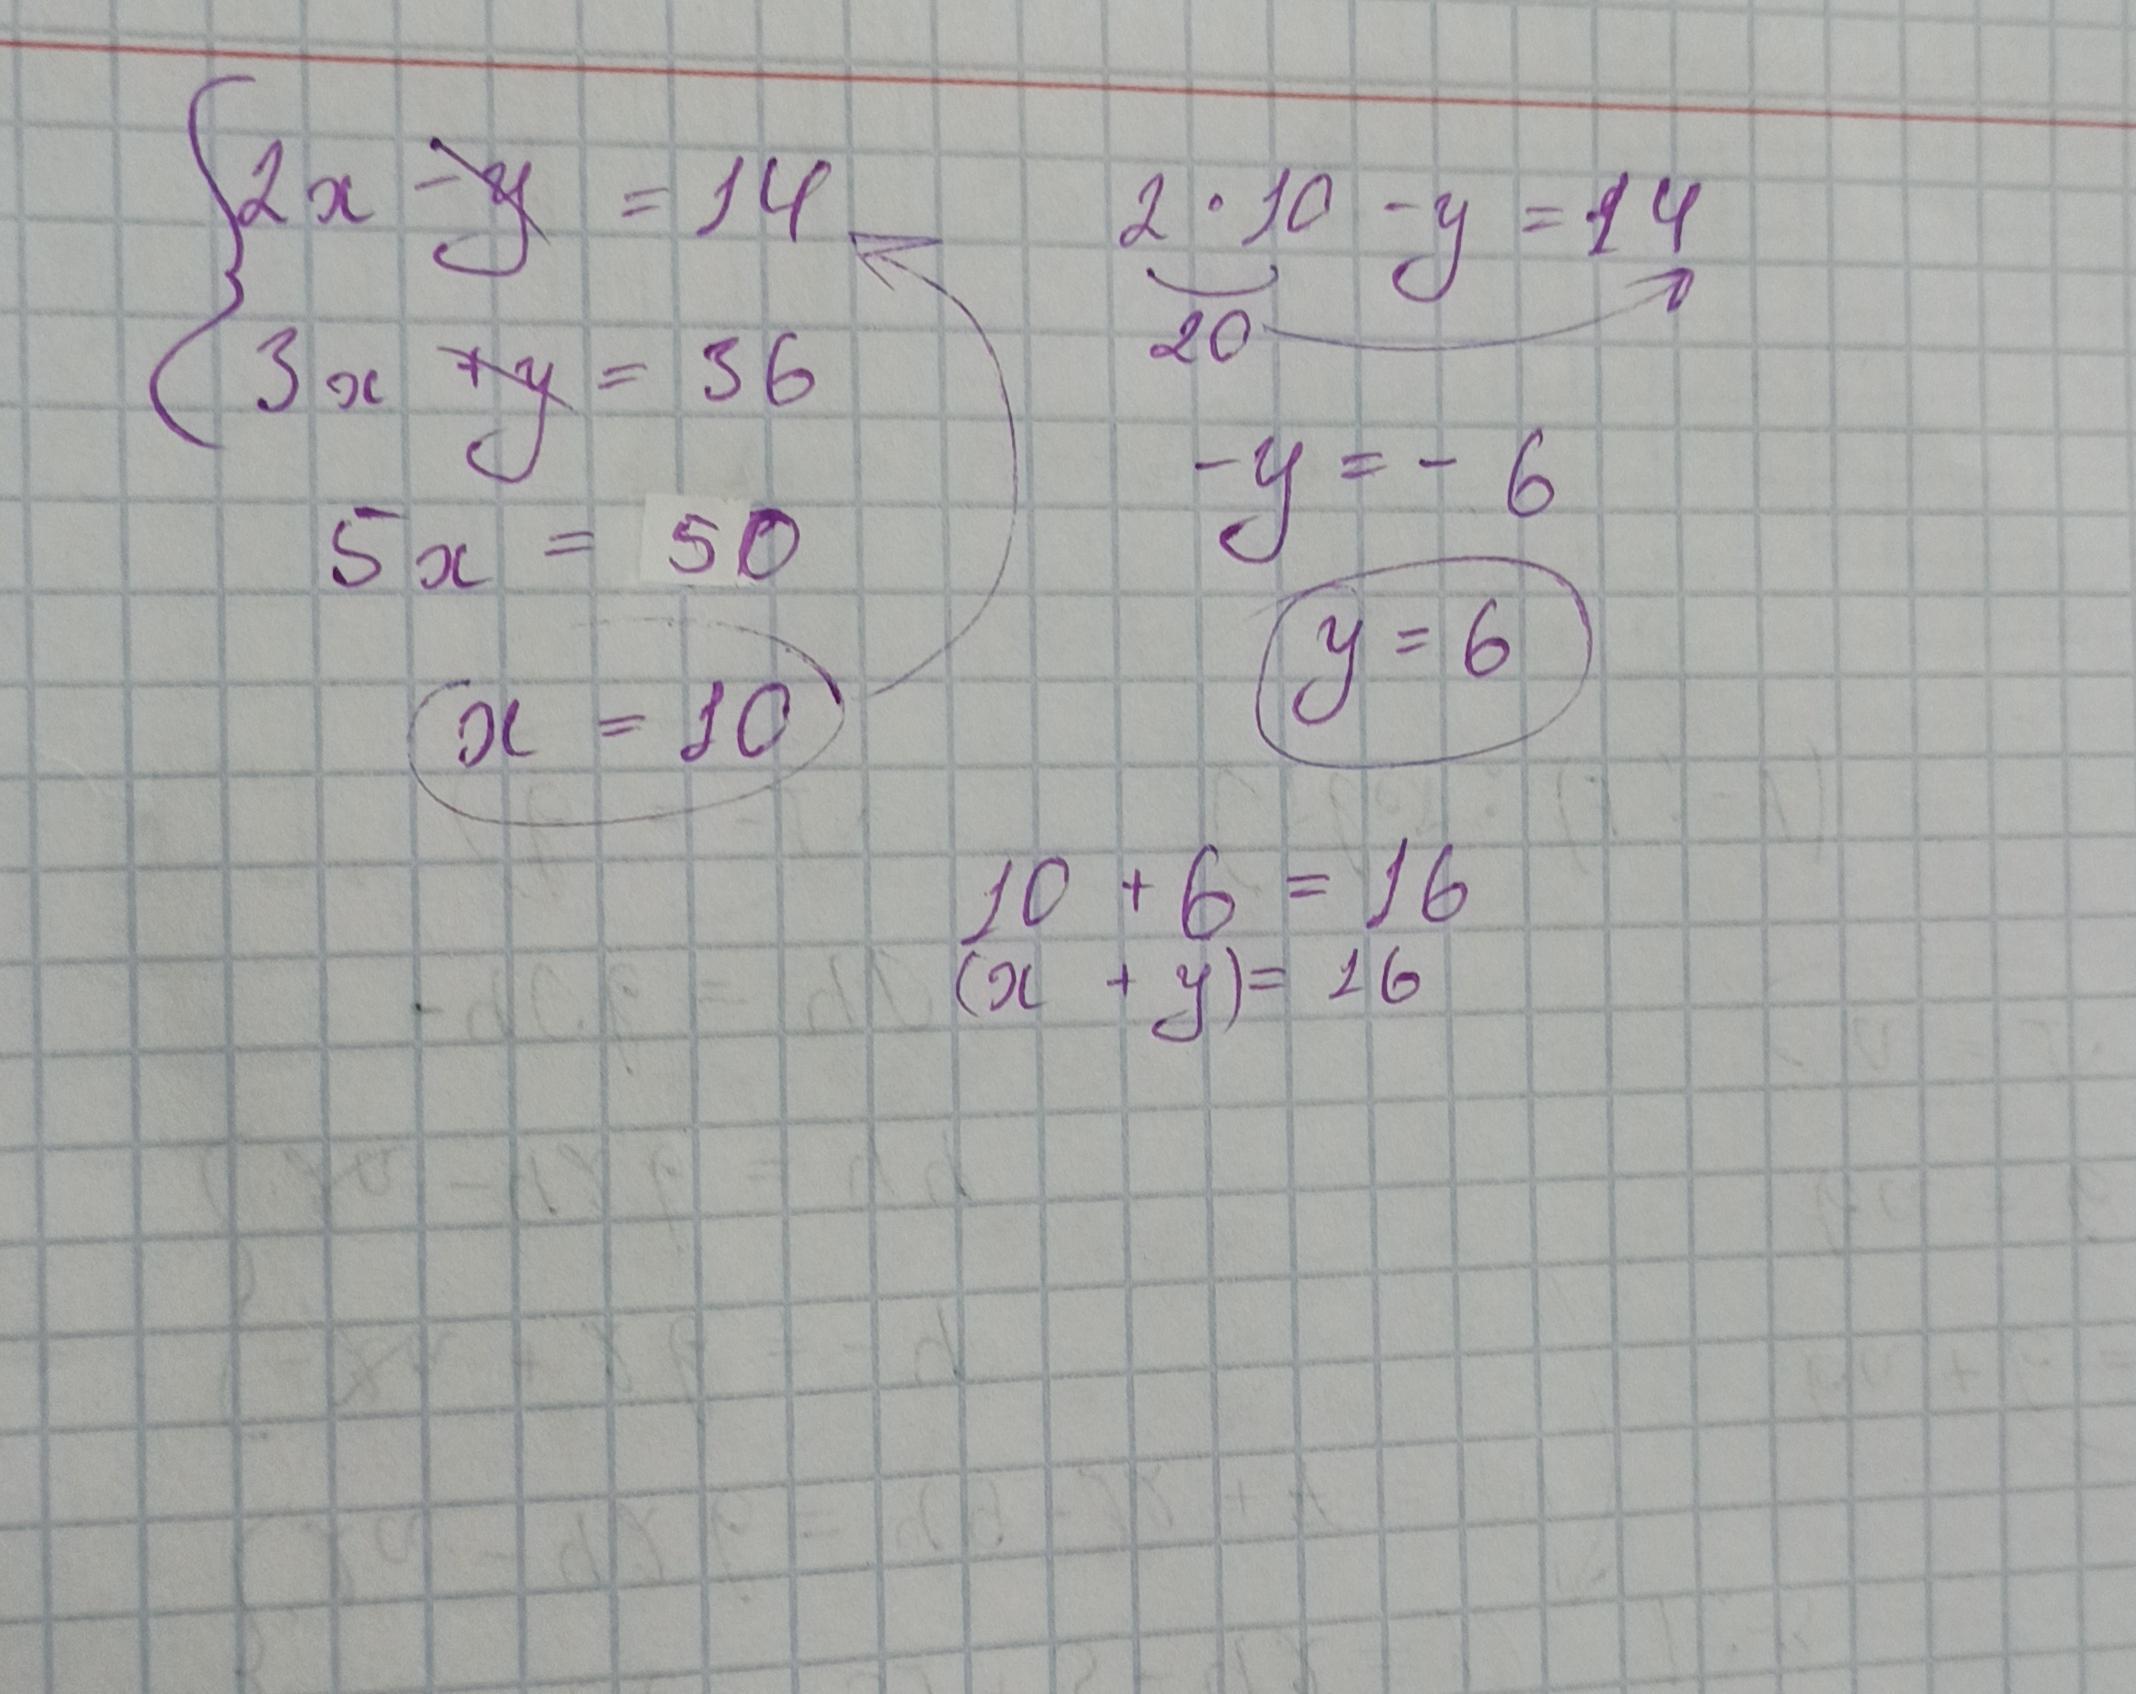 2x - y = 14
3x + y = 36
5x = 50
x = 10
2 · 10 - y = 14
20
-y = - 6
y = 6
10 + 6 = 16
(x + y) = 16